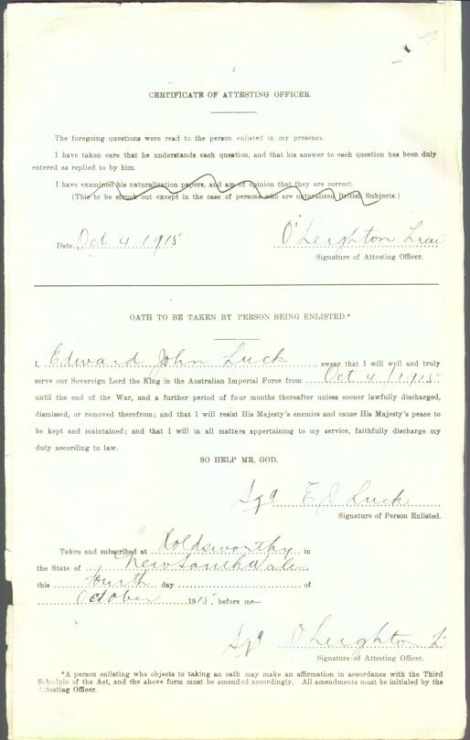 CERTIFICATE OF ATTESTING OFFICER.
The foregoing questions were read to the person enlisted in my presence.
I have taken care that he understands each question, and that his answer to each question has been duly
entered as replied to by him.
I have examined his naturalization papers, and am of opinion that they are correct.
(This to be struck out except in the case of persons who are naturalized British Subjects.)
Date Oct 4 1915 O'Leighton
Signature of Attesting Officer.
OATH TO BE TAKEN BY PERSON BEING ENLISTED.*
I, Edward John Luck swear that I will well and truly
serve our Sovereign Lord the King in the Australian Imperial Force from Oct 4/1915
until the end of the War, and a further period of four months thereafter unless sooner lawfully discharged,
dismissed, or removed therefrom; and that I will resist His Majesty's enemies and cause His Majesty's peace to
be kept and maintained; and that I will in all matters appertaining to my service, faithfully discharge my
duty according to law.
SO HELP ME, GOD.
Sgd E J Luck
Signature of Person Enlisted.
Taken and subscribed at Holdsworthy in
the State of New South Wales
this fourth day of
October 1915, before me—
Sgd O'Leighton L
Signature of Attesting Officer.
*A person enlisting who objects to taking an oath may make an affirmation in accordance with the Third
Schedule of the Act, and the above form must be amended accordingly. All amendments must be initialed by the
Attesting Officer.